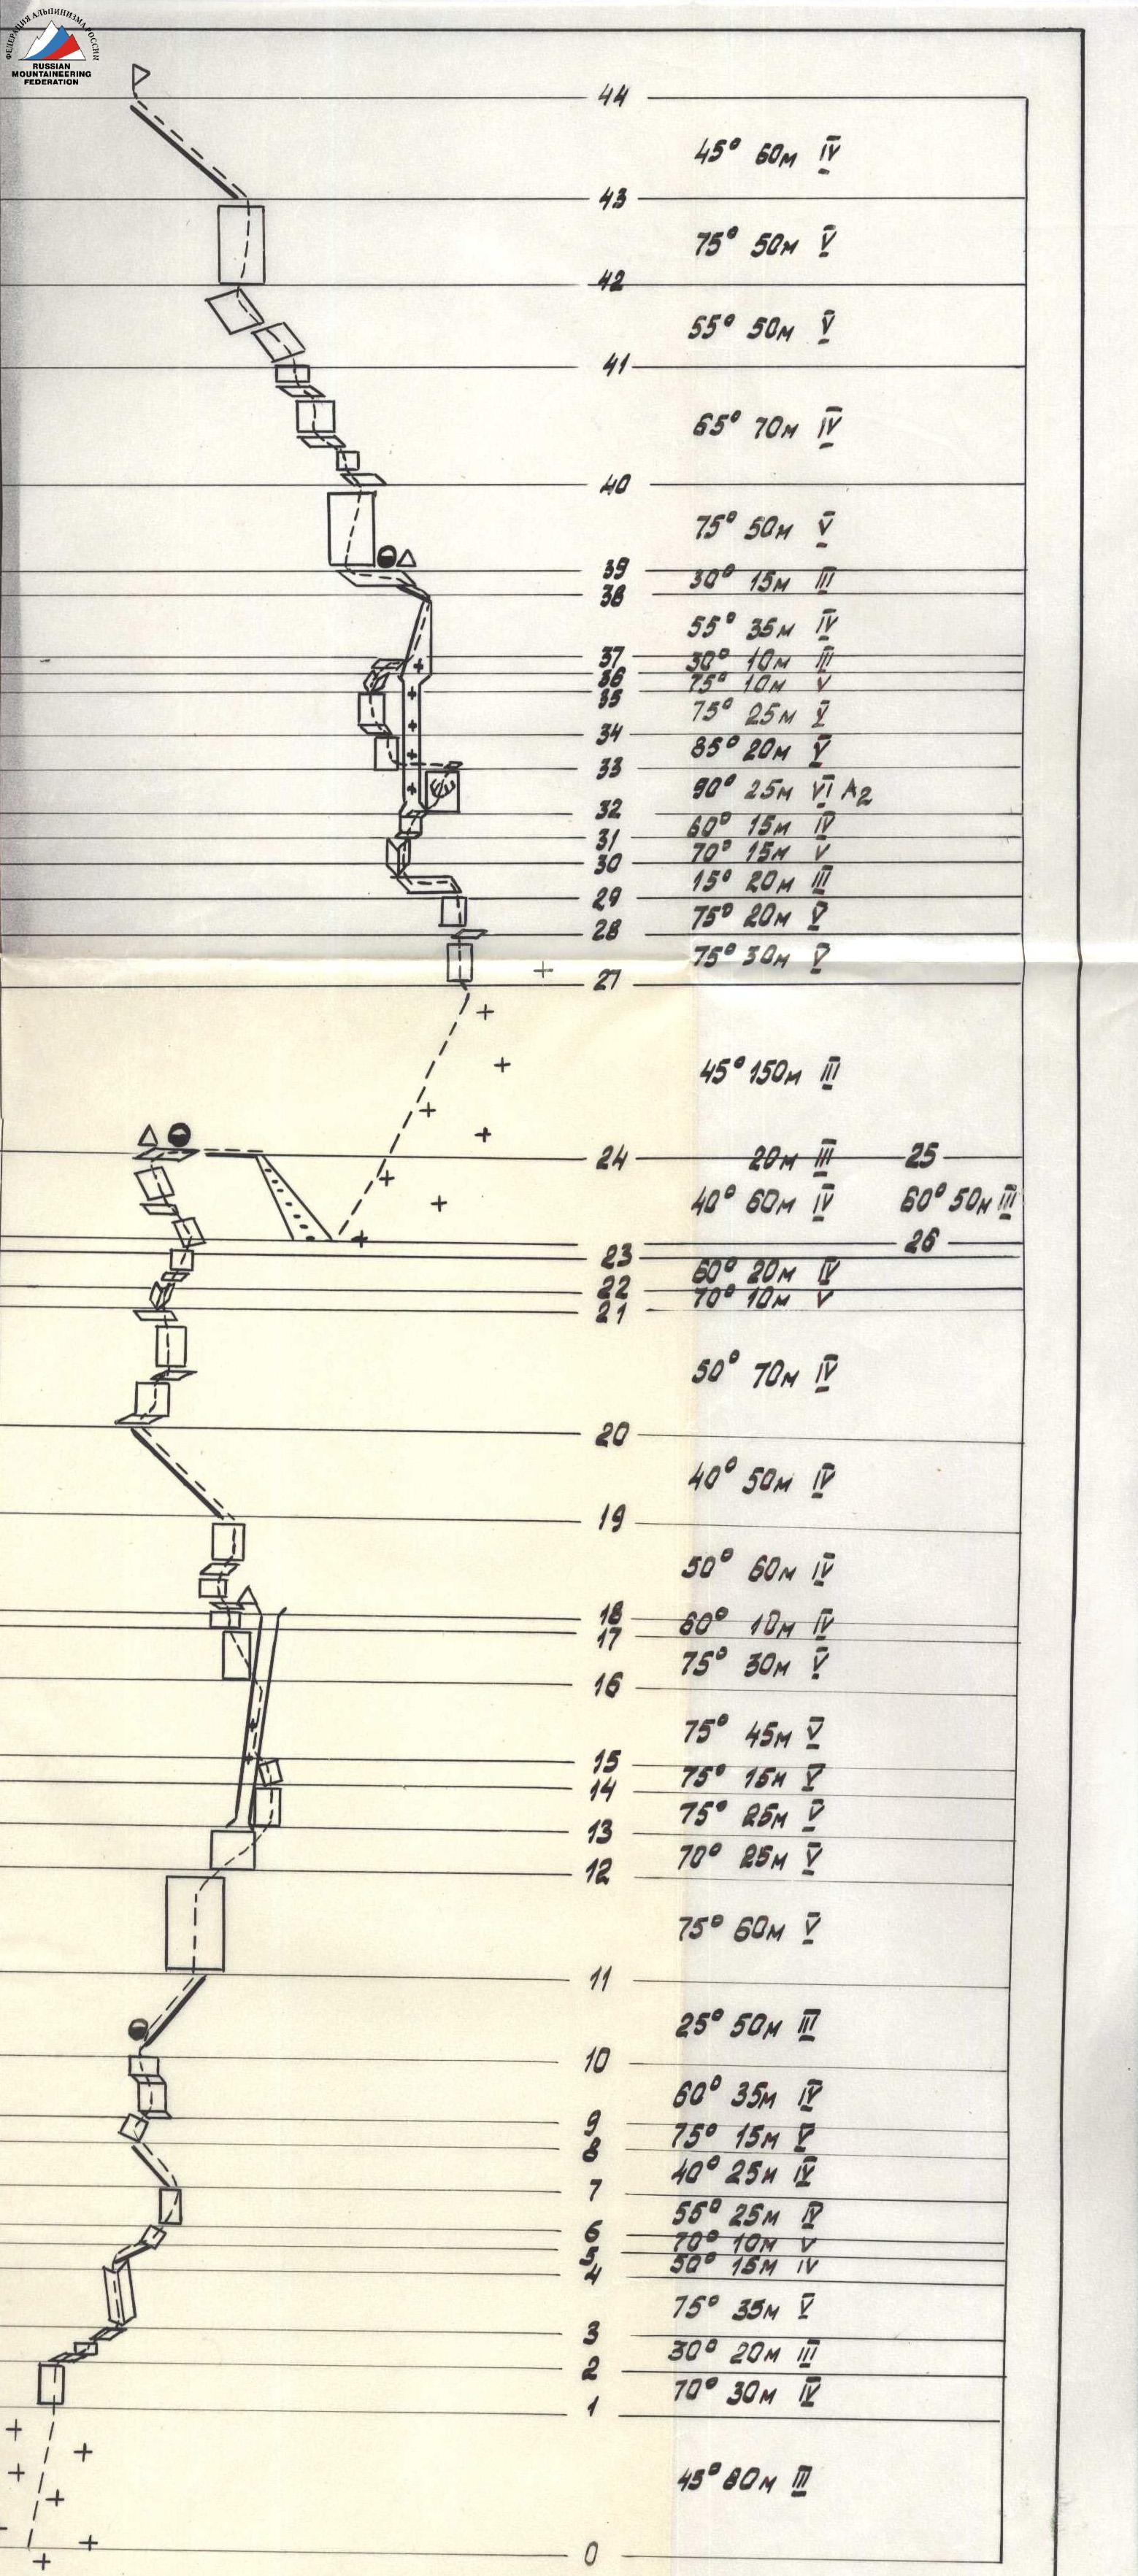 ФЕДЕРАЦИЯ АЛЬПИНИЗМА РОССИИ
RUSSIAN
MOUNTAINEERING
FEDERATION
44
45° 60м IV
43
75° 50м V
42
55° 50м V
41
65° 70м IV
40
75° 50м V
39
30° 15м III
38
55° 35м IV
37
30° 10м III
36
75° 10м V
35
75° 25м V
34
85° 20м V
33
90° 25м VI A2
32
60° 15м IV
31
70° 15м V
30
15° 20м III
29
75° 20м V
28
75° 30м V
27
45° 150м III
24 20м III 25
40° 60м IV 60° 50м III
26
23
60° 20м IV
22
70° 10м V
21
50° 70м IV
20
40° 50м IV
19
50° 60м IV
18
60° 10м IV
17
75° 30м V
16
75° 45м V
15
75° 15м V
14
75° 25м V
13
70° 25м V
12
75° 60м V
11
25° 50м III
10
60° 35м IV
9
75° 15м V
8
40° 25м IV
7
55° 25м IV
6
70° 10м V
5
50° 15м IV
4
75° 35м V
3
30° 20м III
2
70° 30м IV
1
45° 80м III
0